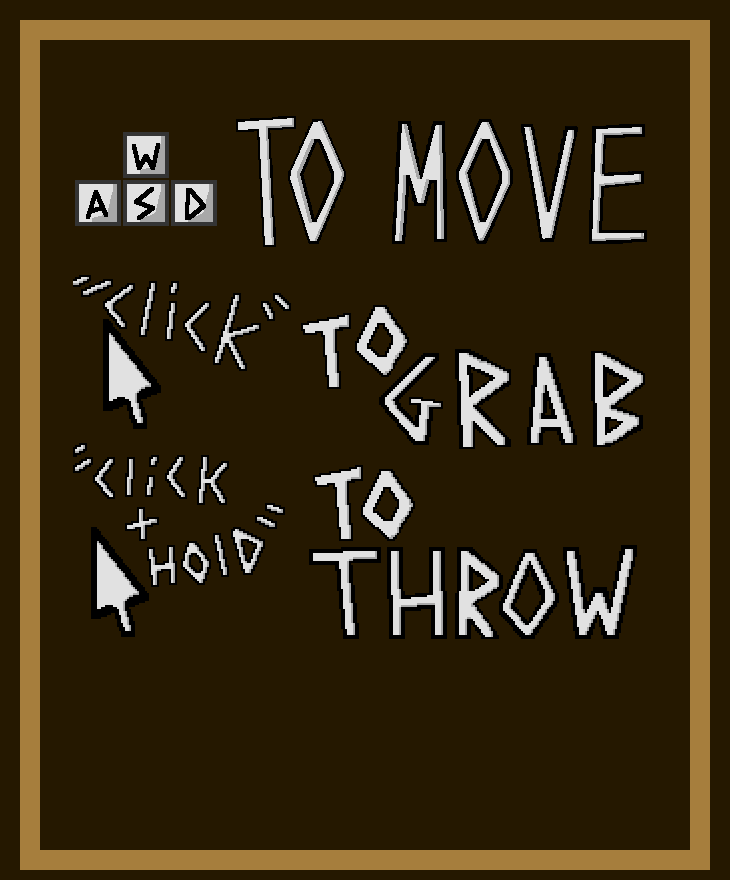 W
A S D TO MOVE
"click" TO
GRAB
"click TO
+
HOLD"
THROW